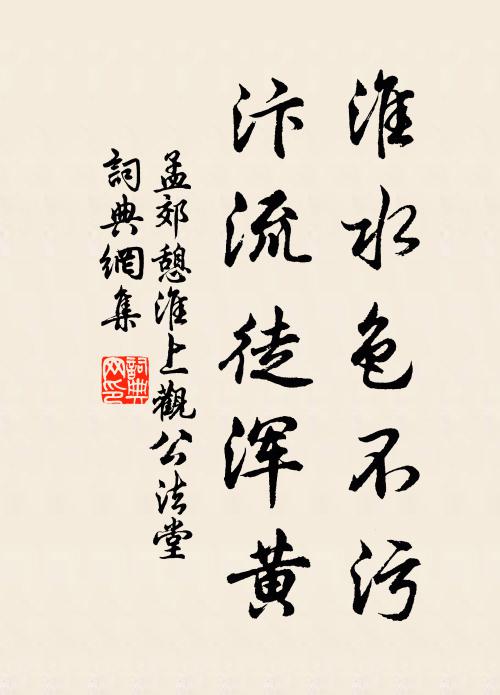 淮水色不污
汴流徒浑黄
孟郊憩淮上觀公法堂
詞典網集
詞典
网印